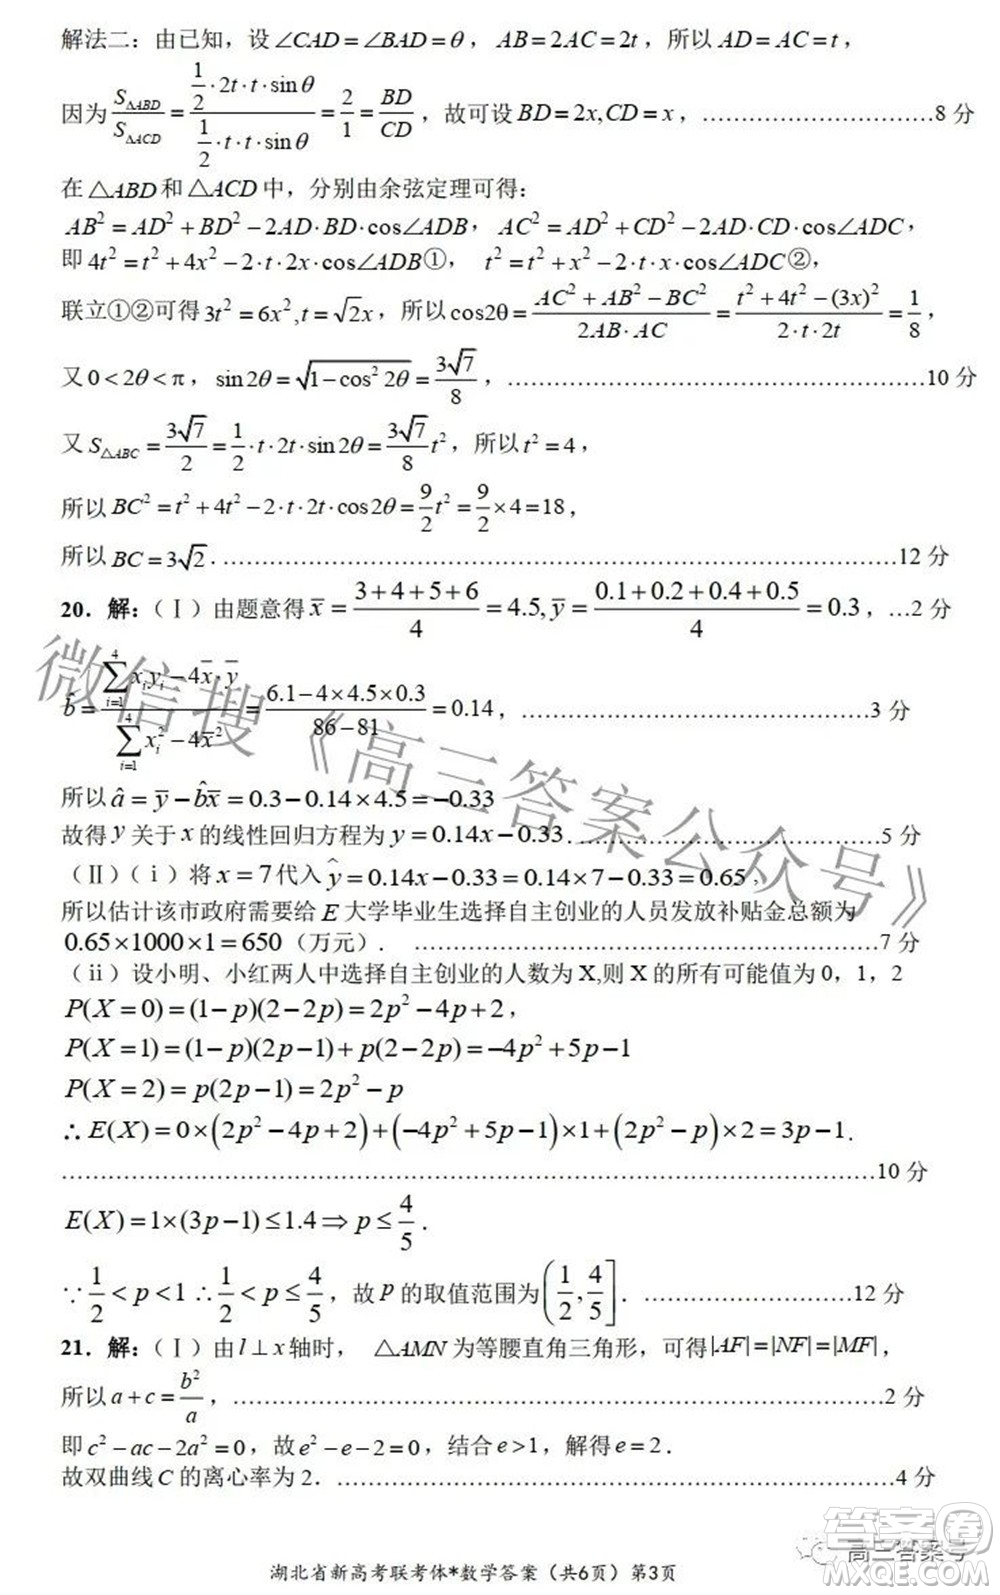 解法二：由已知，设∠CAD=∠BAD=θ，AB=2AC=2t，所以AD=AC=t，
因为 S△ABD/S△ACD = (1/2·2t·t·sinθ)/(1/2·t·t·sinθ) = 2/1 = BD/CD，故可设BD=2x,CD=x，…………………………8 分
在△ABD和△ACD中，分别由余弦定理可得：
AB²=AD²+BD²-2AD·BD·cos∠ADB，AC²=AD²+CD²-2AD·CD·cos∠ADC，
即4t²=t²+4x²-2·t·2x·cos∠ADB①，t²=t²+x²-2·t·x·cos∠ADC②，
联立①②可得3t²=6x²,t=√2x，所以cos2θ=(AC²+AB²-BC²)/(2AB·AC)=(t²+4t²-(3x)²)/(2·t·2t)=1/8，
又0<2θ<π，sin2θ=√(1-cos²2θ)=3√7/8，…………………………10 分
又S△ABC=3√7/2=1/2·t·2t·sin2θ=3√7/8 t²，所以t²=4，
所以BC²=t²+4t²-2·t·2t·cos2θ=9/2 t²=9/2×4=18，
所以BC=3√2．…………………………12 分
20．解：（Ⅰ）由题意得x̄=(3+4+5+6)/4=4.5,ȳ=(0.1+0.2+0.4+0.5)/4=0.3，…2 分
b̂=(∑(i=1→4)xᵢyᵢ-4x̄·ȳ)/(∑(i=1→4)xᵢ²-4x̄²)=(6.1-4×4.5×0.3)/(86-81)=0.14，…………………………3 分
所以â=ȳ-b̂x̄=0.3-0.14×4.5=-0.33
故得y关于x的线性回归方程为y=0.14x-0.33．…………………………5 分
（Ⅱ）（ⅰ）将x=7代入ŷ=0.14x-0.33=0.14×7-0.33=0.65，
所以估计该市政府需要给E大学毕业生选择自主创业的人员发放补贴金总额为
0.65×1000×1=650（万元）．…………………………7 分
（ii）设小明、小红两人中选择自主创业的人数为X,则X的所有可能值为0，1，2
P(X=0)=(1-p)(2-2p)=2p²-4p+2，
P(X=1)=(1-p)(2p-1)+p(2-2p)=-4p²+5p-1
P(X=2)=p(2p-1)=2p²-p
∴E(X)=0×(2p²-4p+2)+(-4p²+5p-1)×1+(2p²-p)×2=3p-1．
…………………………10 分
E(X)=1×(3p-1)≤1.4⇒p≤4/5．
∵1/2<p<1 ∴1/2<p≤4/5，故p的取值范围为(1/2,4/5]．…………………………12 分
21．解：（Ⅰ）由l⊥x轴时，△AMN为等腰直角三角形，可得|AF|=|NF|=|MF|，
所以a+c=b²/a，…………………………2 分
即c²-ac-2a²=0，故e²-e-2=0，结合e>1，解得e=2．
故双曲线C的离心率为2．…………………………4 分
湖北省新高考联考体*数学答案（共6页）第3页
微信搜《高三答案公众号》
高三答案号
答案圈
MXQE.COM